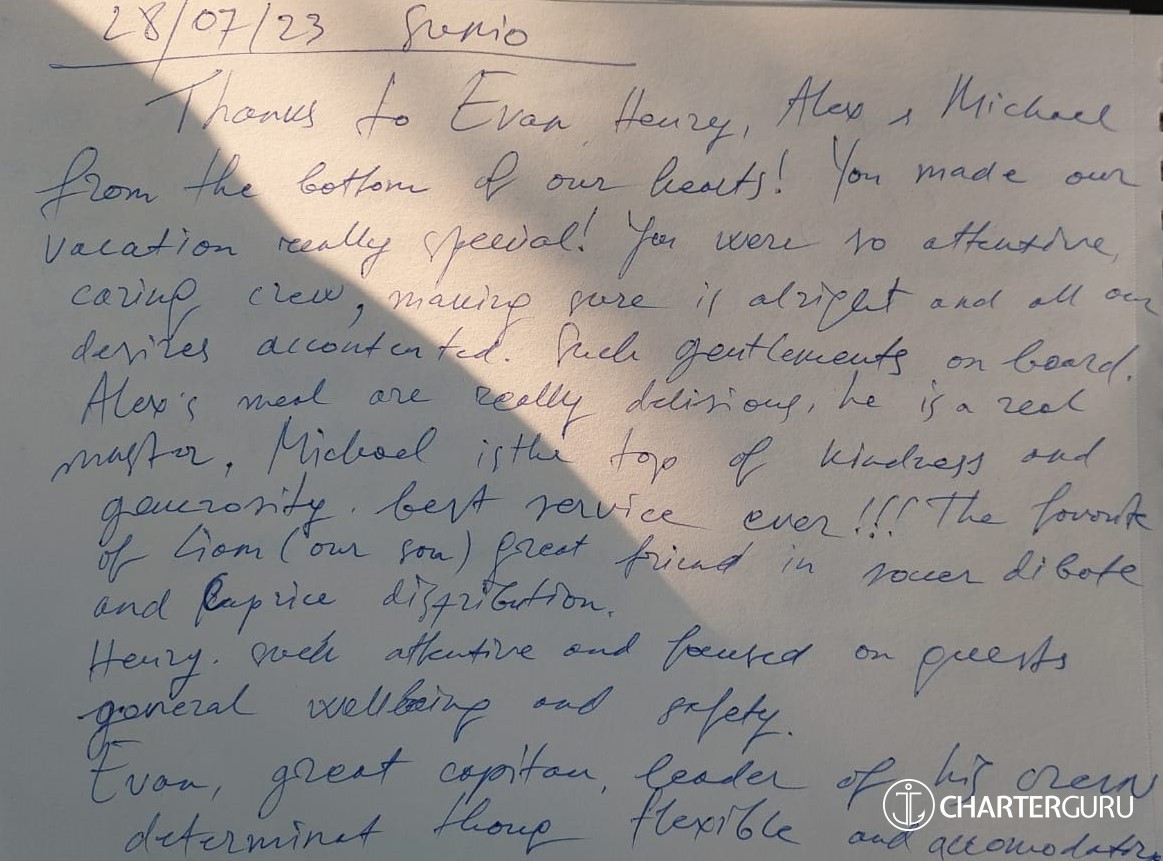 28/07/23
Thanks to Evan, Henry, Alex & Michael
from the bottom of our hearts! You made our
vacation really special! You were so attentive,
caring crew, making sure is alright and all our
desires accontented. Such gentlements on board.
Alex's meal are really delisious, he is a real
mastor. Michael is the top of kindness and
generosity. best service ever!!! The favorite
of Liam (our son) great friend in soccer dibate
and Caprice distribution.
Henry. such attentive and focused on guests
general wellbeing and safety.
Evan, great capitan, leader of his crew
determinat thoug flexible and accomodating
CHARTERGURU